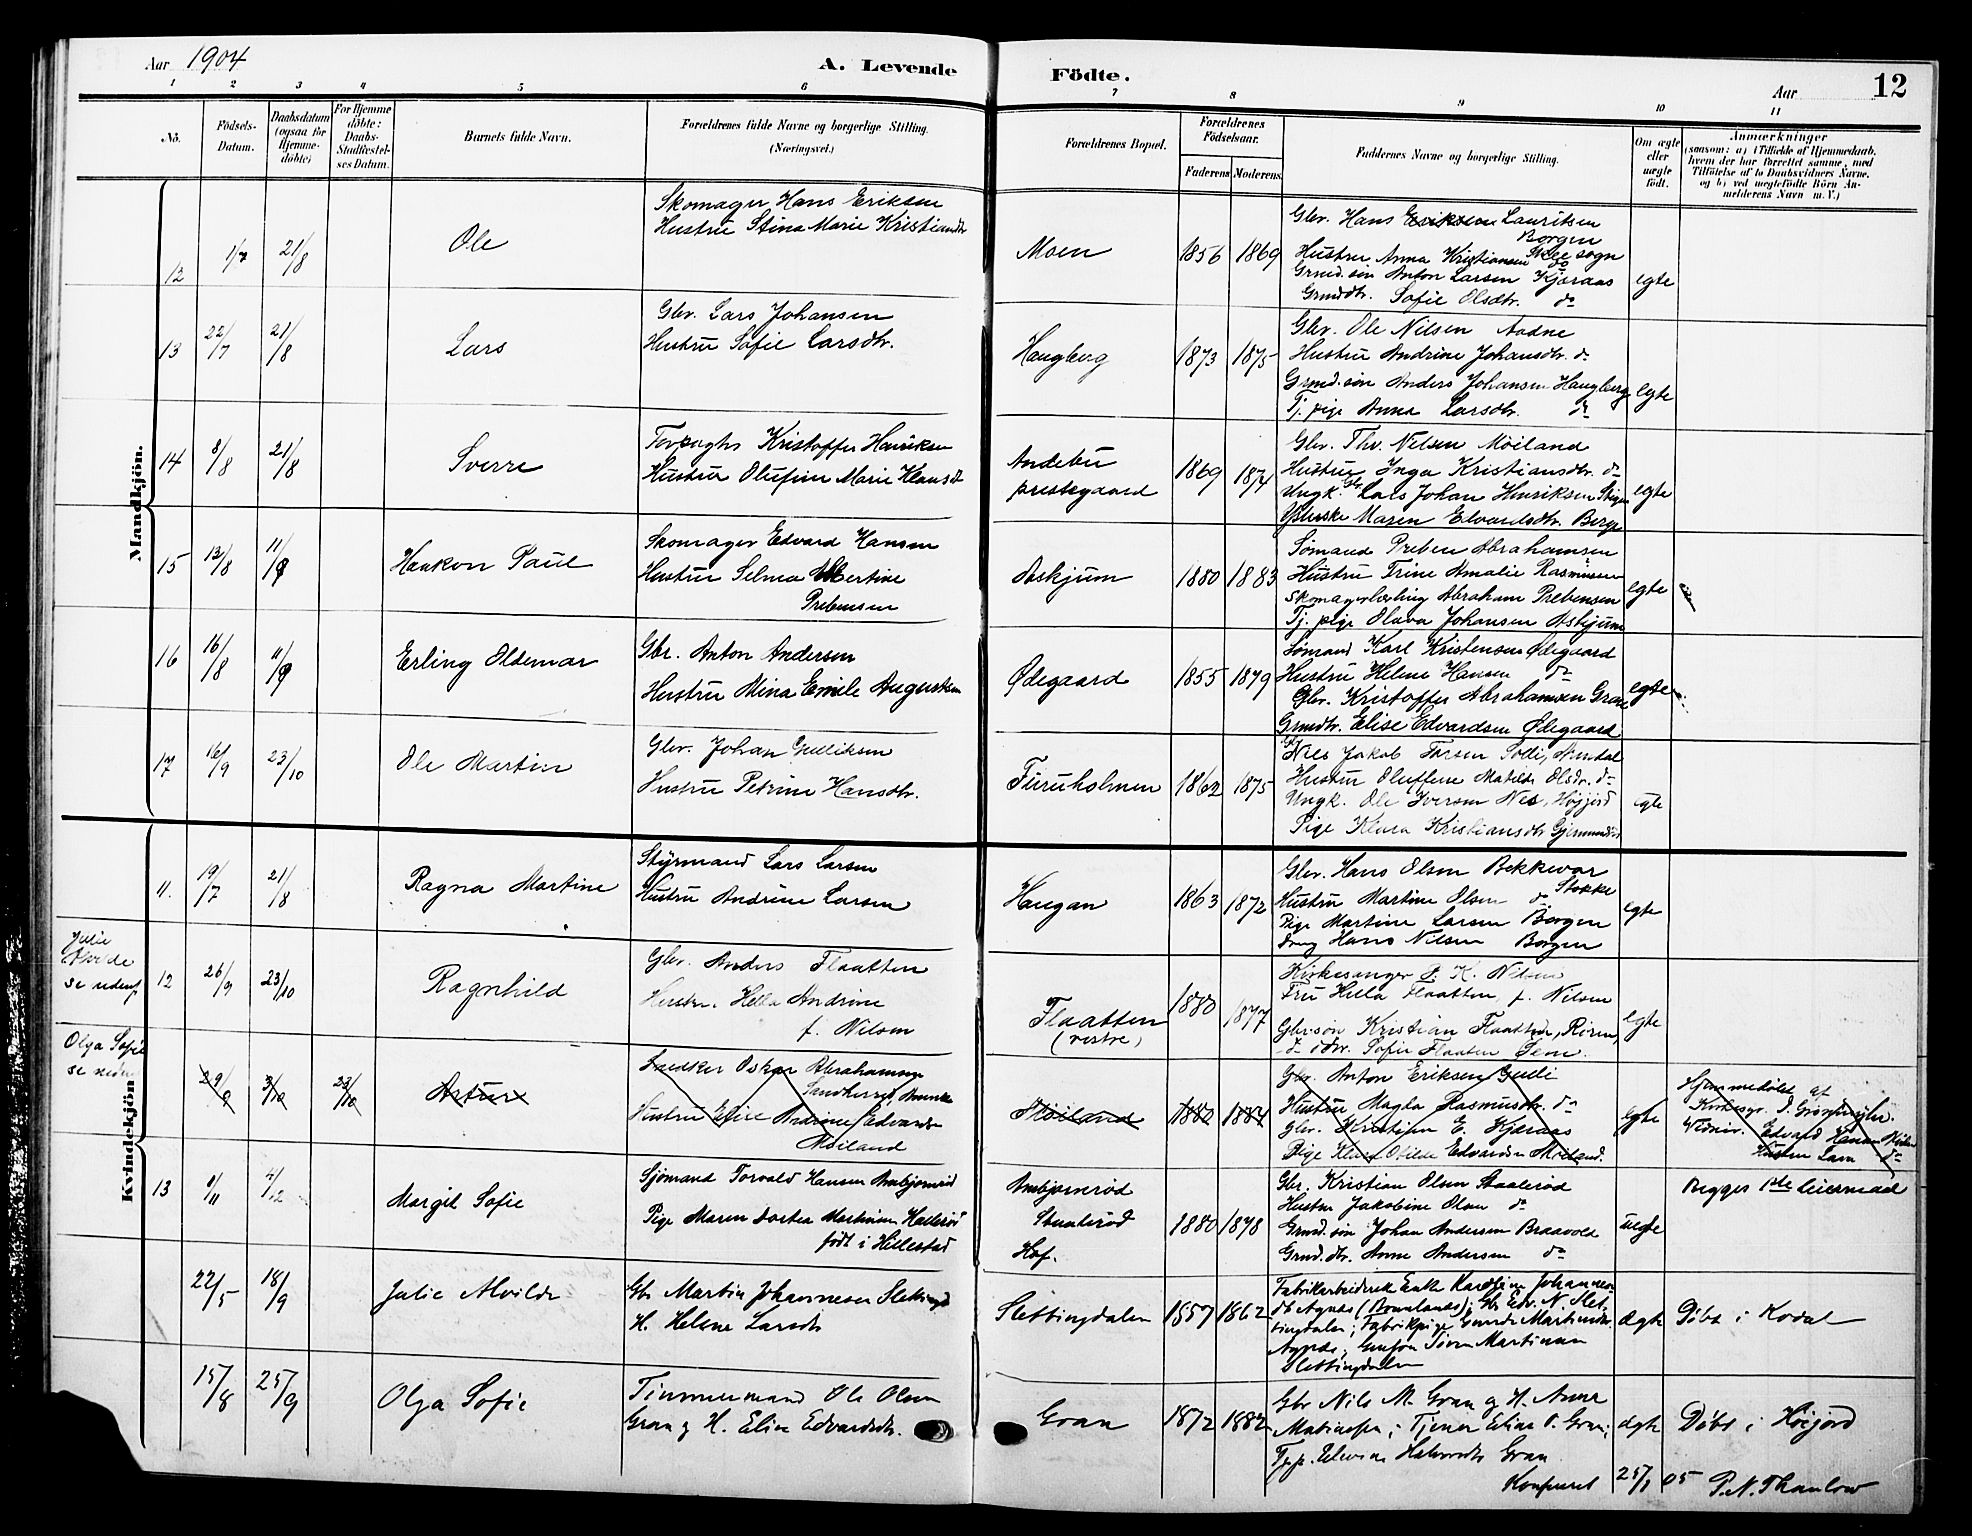 Aar 1904
A. Levende
Födte.
Aar
12
1 2 3 4 5 6 7 8 9 10 11
No.
Födsels-
Datum.
Daabsdatum
(ogsaa for
Hjemme-
döbte)
For Hjemme
döbte:
Daabs-
Stadfæstel-
ses Datum.
Barnets fulde Navn.
Forældrenes fulde Navne og borgerlige Stilling.
(Næringsvei.)
Forældrenes Bopæl.
Forældrenes
Födselsaar.
Faderens
Moderens.
Faddernes Navne og borgerlige Stilling.
Om ægte
eller
uægte
født.
Anmærkninger
(saasom: a) i Tilfælde af Hjemmedaab,
hvem der har forrettet samme, med
Tilföielse af to Daabsvidners Navne.
og b) ved uægtefödte Börn An-
melderens Navn m. V.)
Mandkjön.
12 1/7 21/8 Ole
Skomager Hans Eriksen
Hustru Stina Marie Kristiansdtr
Moen 1856 1869
Gbr. Hans Eriksen Lauritsen
Borgen
Hustru Anna Kristiansen
Grmd.søn Anton Larsen Kjæraas
Grmddtr. Sofie Olsdtr. do
egte
13 22/7 21/8 Lars
Gbr. Lars Johansen
Hustru Sofie Larsdtr.
Haugberg 1873 1875
Gbr. Ole Nilsen Aadne
Hustru Andrine Johansdtr. do
Grmd.søn Anders Johansen Haugberg
Tj. pige Anna Larsdtr. do
egte
14 8/8 21/8 Sverre
Kristoffer Henriksen
Hustru Olufine Marie Klausdt
Andebu
prestegaard
1869 1874
Gbr. Thv. Nilsen Møiland
Hustru Inga Kristiansdtr. do
Ungk. Lars Johan Henriksen
Maren Edvardsdtr. Berge
egte
15 13/8 11/9 Haakon Paul
Skomager Edvard Hansen
Hustru Selma Albertine
Prebensen
Askjum 1880 1883
Sømand Preben Abrahamsen
Hustru Trine Amalie Rasmussen
Skomagerlærling Abraham Prebensen
Tj. pige Olava Johansen Askjum
egte
16 16/8 11/9 Erling Oldemar
Gbr. Anton Andersen
Hustru Mina Emile Augustsen
Ødegaard 1855 1879
Sømand Karl Kristensen Ødegaard
Hustru Helene Hansen do
Gbr. Kristoffer Abrahamsen Gran
Grmdtr. Elise Edvardsen Ødegaard
egte
17 16/9 23/10 Ole Martin
Gbr. Johan Gulliksen
Hustru Petrine Hansdtr.
Furuholmen 1862 1875
Nils Jakob
Hustru Oluffine Matilde Olsdr. do
Ungk. Ole Iversen Nes, Høijord
Pige Klara Kristiansdtr
egte
Kvindekjön
11. 19/7 21/8 Ragna Martine
Styrmand Lars Larsen
Hustru Andrine Larsen
Haugan 1863 1872
Gbr. Hans Olsen Bekkevar
Stokke
Hustru Martine Olsen do
Pige Martine Larsen Borgen
Dreng Hans Nilsen Borgen
egte
Julie
Alvilde
se nedenf.
12 26/9 23/10 Ragnhild
Gbr. Anders Flaatten
Hustru Hella Andrine
f. Nilsen
Flaatten
(vestre)
1880 1877
Kirkesanger P. K. Nilsen
Fru Hella Flaatten f. Nilsen
Gbr.søn Kristian Flaatten,
Sofie Flaaten Sem.
egte
Olga Sofie
se neden
29/9 3/10 23/10 Arture
Snedker Oskar Abrahamsen
Hustru Andrine Edvardsen
Møiland
Møiland 1880 1884
Gbr. Anton Eriksen Gulli
Hustru Magla Rasmusdtr. do
Gbr. Kristian E. Kjæraas
Pige Edvardsen Møiland.
egte
Hjemmedøbt af
Vidner. Edvard Hansen
Hustru Lava do
13 9/11 4/12 Margit Sofie
Sjømand Torvald Hansen Ambjørnrød
Pige Maren Dortea Martinsen Hallerød
født i Hillestad
Ambjørnrød
Staalerød
Hof.
1880 1878
Gbr. Kristian Olsen Staalerød
Hustru Jakobine Olsen do
Grmd.søn Johan Andersen Braavold
Grmd.dtr. Anne Andersen do
uegte
Begges 1ste leiermaal
22/5 18/9 Julie Alvilde
Gbr Martin Johannesen Slettingd
H. Helene Larsdtr
Slettingdalen 1857 1862
Fabrikarbeidersk Enke Karoline Johannes-
dtr Agnæs (Brunlanes); Gbr Edv. N. Slet-
tingdalen; Fabrikpige Martinsdtr.
Agnæs; Søren Martinsen
Slettingdalen
ægte Døbt i Kodal
15/8 25/9 Olga Sofie
Tømmermand Ole Olsen
Gran og H. Elise Edvardsdtr.
Gran 1872 1882
Gbr Nils M. Gran og H. Anne
Matiasen; Tjener Edvar O. Gran;
Tj.p. Halvorsdtr Gran
ægte Døbt i Høijord
Konfereret 25/1 05 P. N. Thaulow